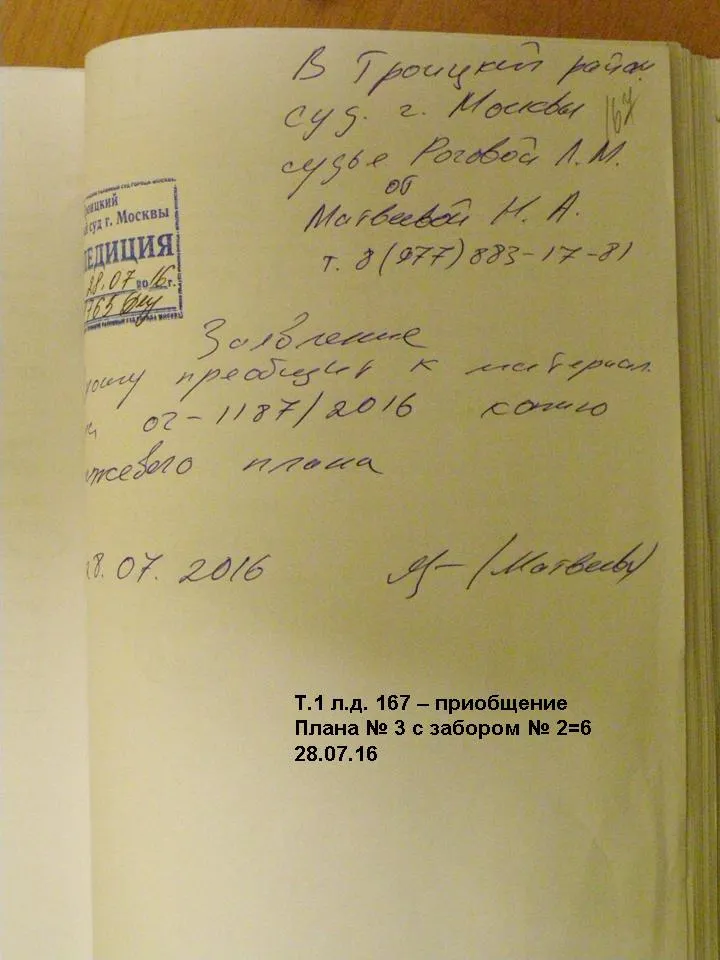 В Троицкий район.
суд. г. Москвы
167
судье Роговой Л.М.
от
Матвеевой Н. А.
т. 8(977)883-17-81
роицкий
й суд г. Москвы
ПЕДИЦИЯ
28.07 2016г.
765
Заявление
рошу преобщит к материал.
ог-1187/2016 копию
жевого плана
28.07. 2016
(Матвеева)
Т.1 л.д. 167 – приобщение
Плана № 3 с забором № 2=6
28.07.16